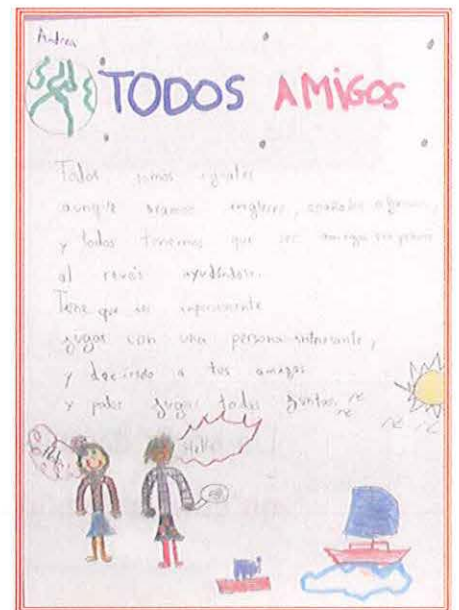 Andrea
TODOS AMIGOS
Todos somos iguales
aunque seamos ingleses, españoles
y todos tenemos que ser amigos
al revés ayudándose.
Tiene que ser
jugar con una persona interesante,
y a tus amigos
y poder jugar todos juntos
Hello